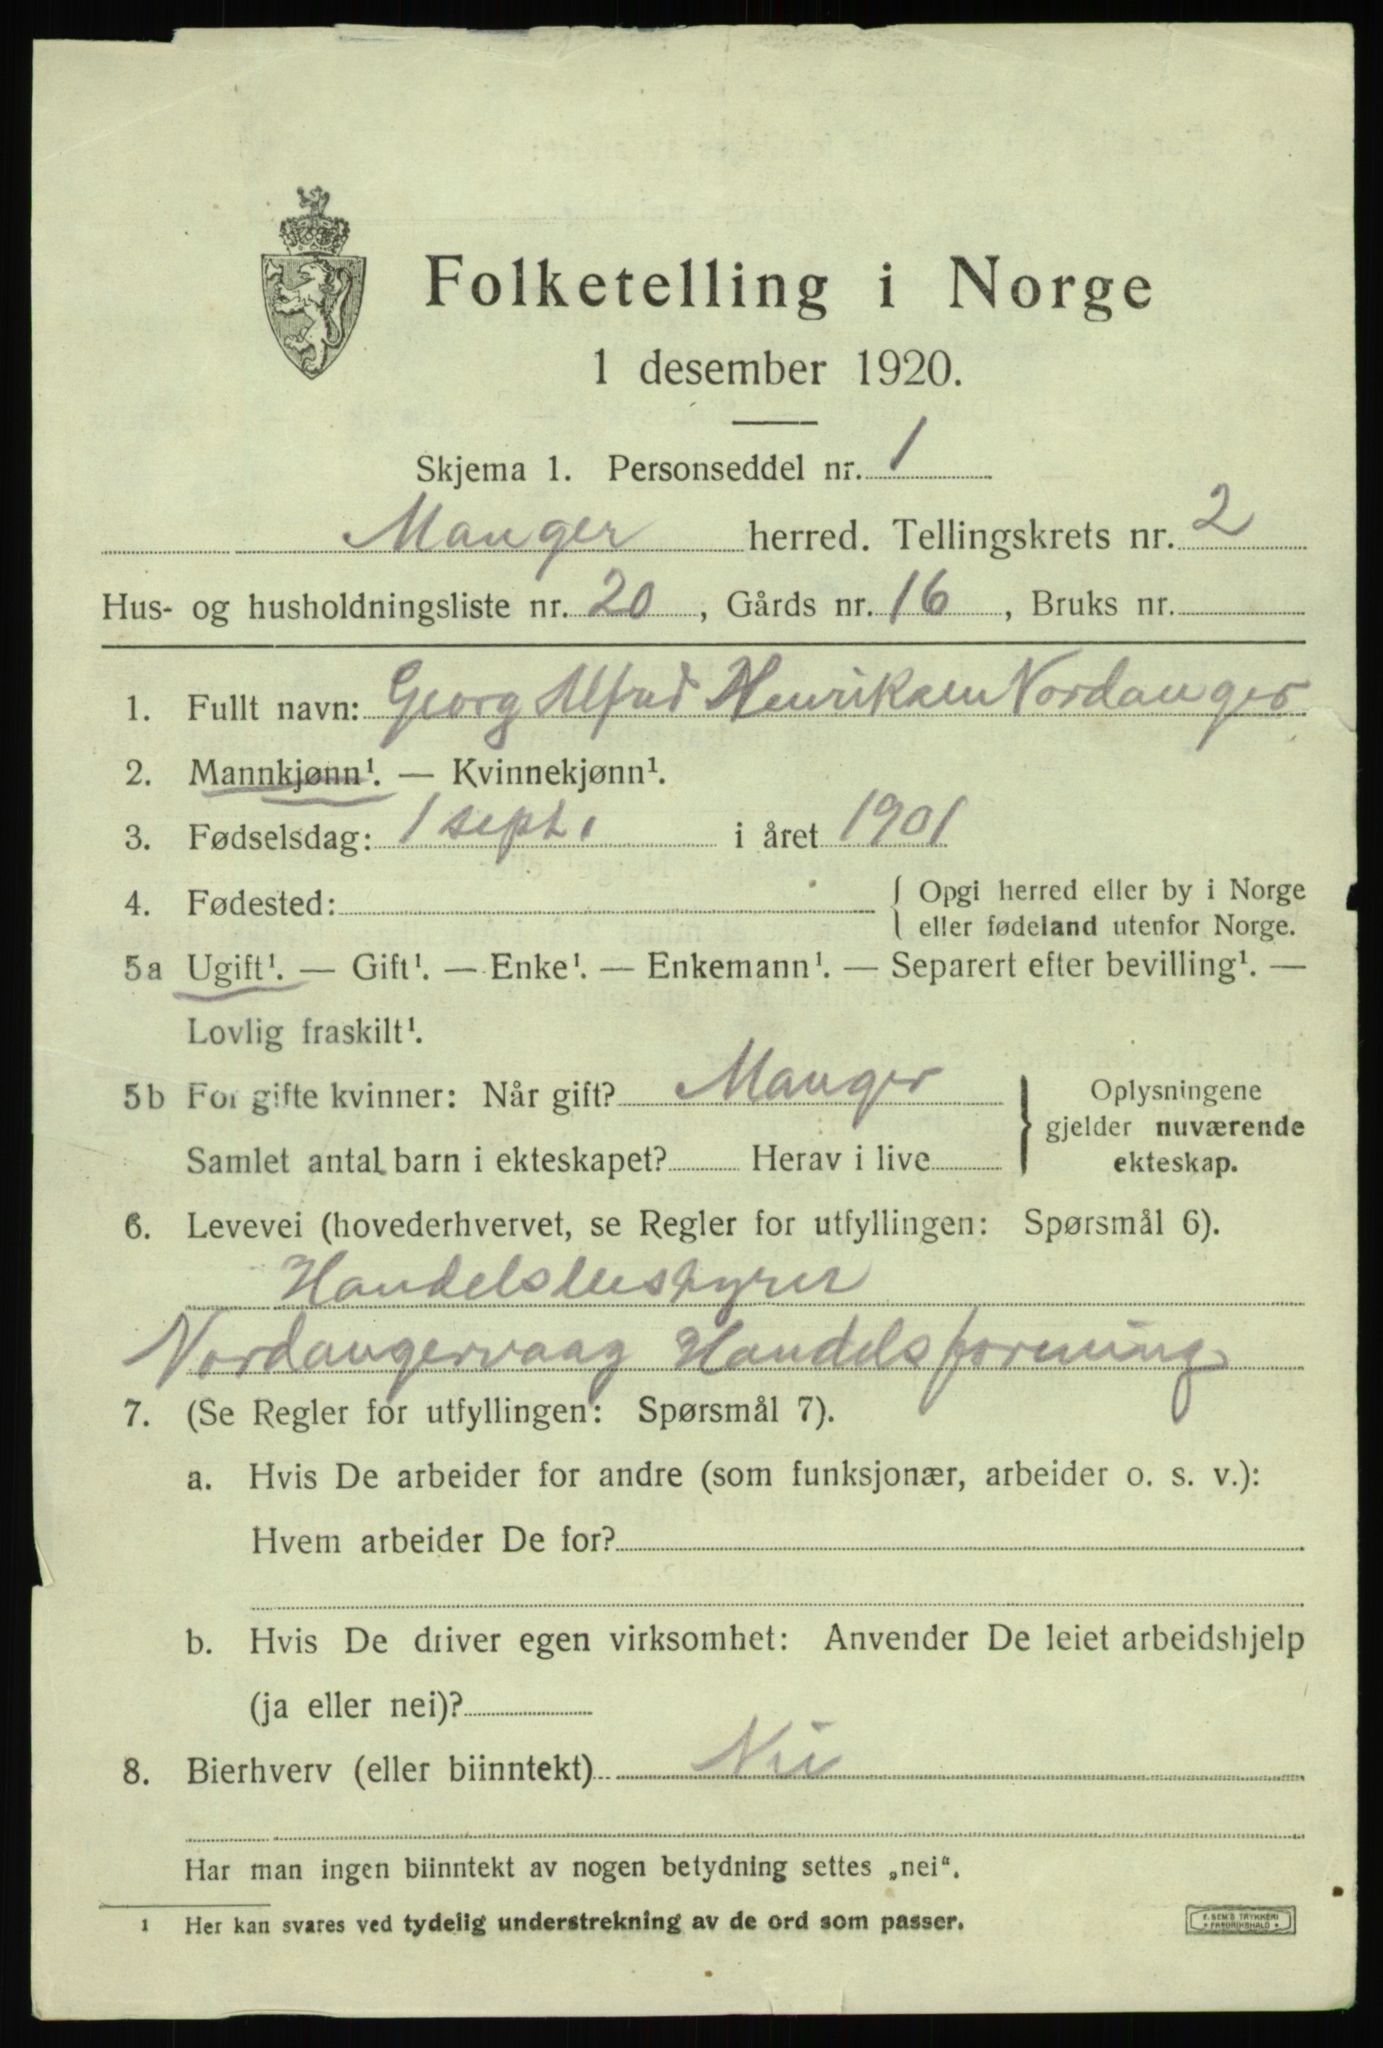 Folketelling i Norge
1 desember 1920.
Skjema 1. Personseddel nr. 1
Manger herred. Tellingskrets nr. 2
Hus- og husholdningsliste nr. 20, Gårds nr. 16, Bruks nr.
1. Fullt navn: Georg Alfred Henriksen Nordanger
2. Mannkjønn¹. — Kvinnekjønn¹.
3. Fødselsdag: 1 sept. i året 1901
4. Fødested: { Opgi herred eller by i Norge
eller fødeland utenfor Norge.
5a Ugift¹. — Gift¹. — Enke¹. — Enkemann¹. — Separert efter bevilling¹. —
Lovlig fraskilt¹.
5b For gifte kvinner: Når gift? Manger } Oplysningene
gjelder nuværende
Samlet antal barn i ekteskapet? Herav i live ekteskap.
6. Levevei (hovederhvervet, se Regler for utfyllingen: Spørsmål 6).
Handelsbestyrer
Nordangervaag Handelsforening
7. (Se Regler for utfyllingen: Spørsmål 7).
a. Hvis De arbeider for andre (som funksjonær, arbeider o. s. v.):
Hvem arbeider De for?
b. Hvis De driver egen virksomhet: Anvender De leiet arbeidshjelp
(ja eller nei)?
8. Bierhverv (eller biinntekt) Nei
Har man ingen biinntekt av nogen betydning settes „nei“.
¹ Her kan svares ved tydelig understrekning av de ord som passer.
E. SEM'S TRYKKERI
FREDRIKSHALD